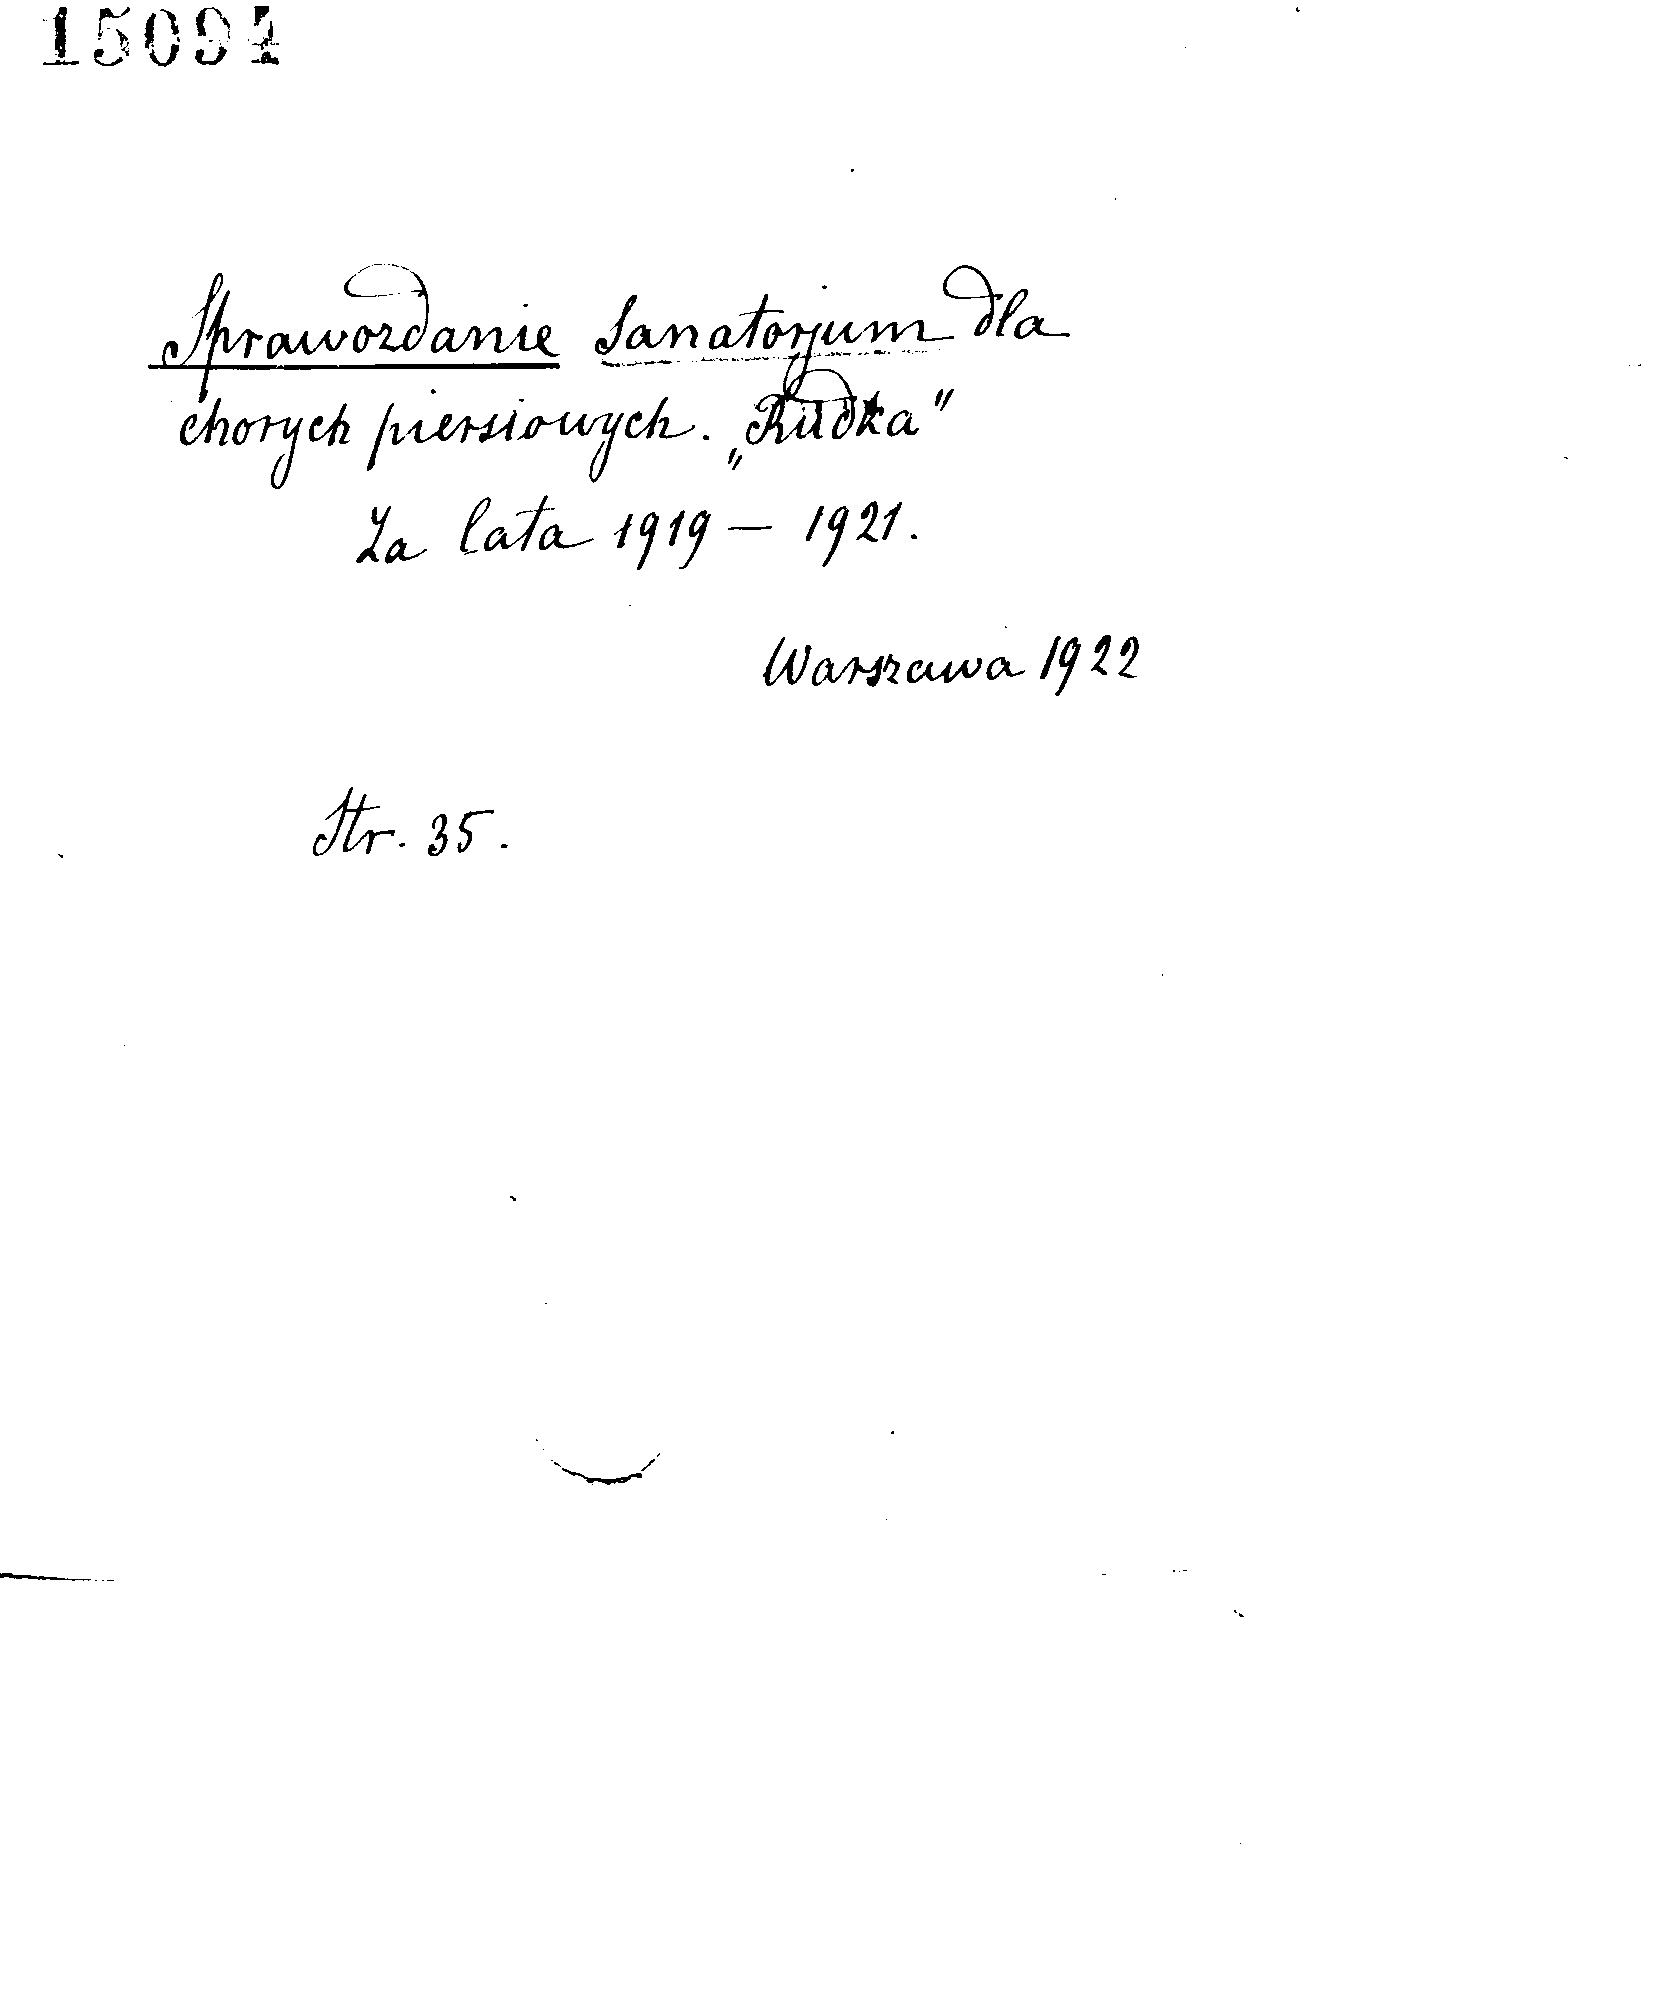 15094
Sprawozdanie Sanatorjum dla
chorych piersiowych. „Rudka"
Za lata 1919 — 1921.
Warszawa 1922
Str. 35.